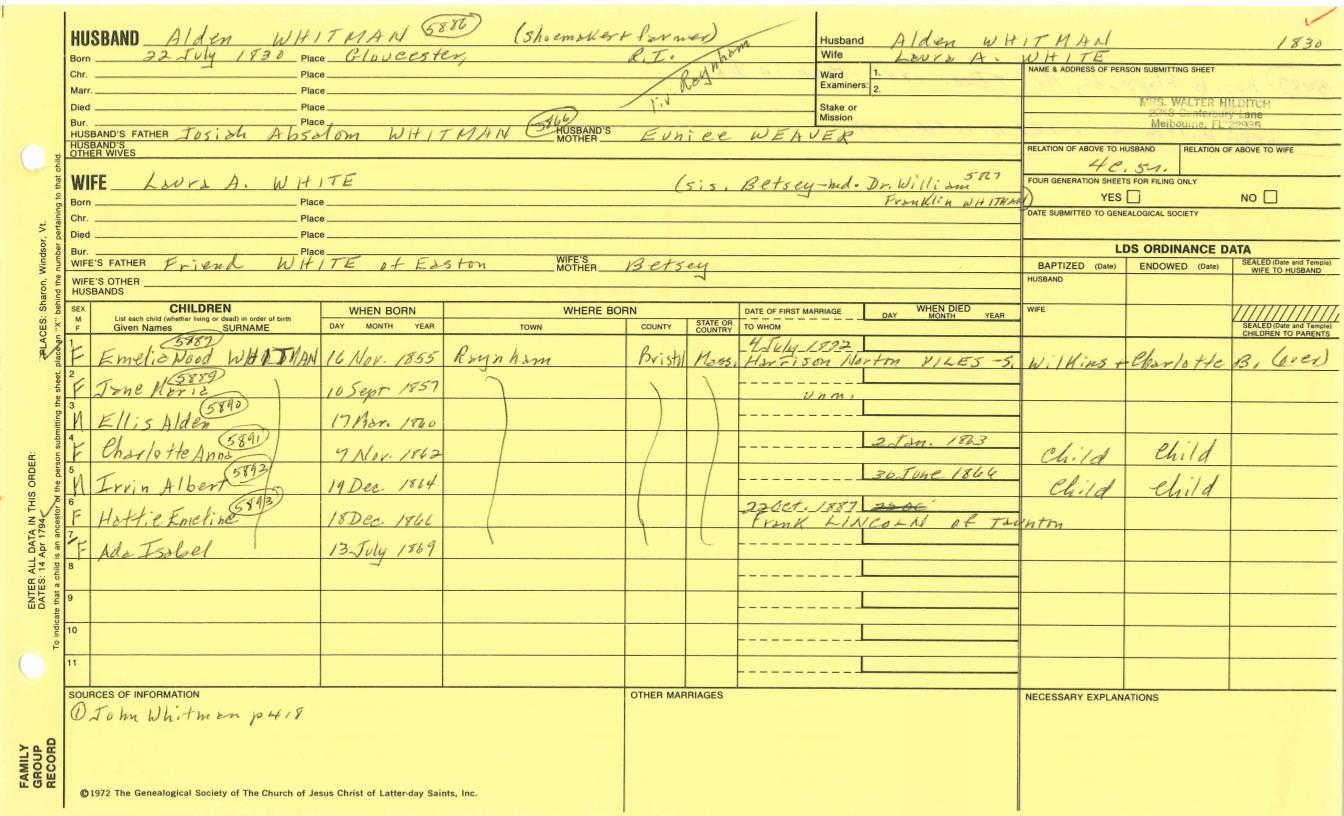 HUSBAND Alden WHITMAN 5886 (shoemaker & farmer)
Born 22 July 1830 Place Gloucester, R.I.
liv. Raynham
Chr. Place
Marr. Place
Died Place
Bur. Place
HUSBAND'S FATHER Josiah Absalom WHITMAN 5866 HUSBAND'S MOTHER Eunice WEAVER
HUSBAND'S OTHER WIVES
WIFE Laura A. WHITE (sis. Betsey-md. Dr. William Franklin WHITMAN)
Born Place
Chr. Place
Died Place
Bur. Place
WIFE'S FATHER Friend WHITE of Easton WIFE'S MOTHER Betsey
WIFE'S OTHER HUSBANDS
Husband Alden WHITMAN 1830
Wife Laura A. WHITE
Ward Examiners: 1. 2.
Stake or Mission
NAME & ADDRESS OF PERSON SUBMITTING SHEET
MRS. WALTER HILDITCH
Canterbury Lane
Melbourne, FL
RELATION OF ABOVE TO HUSBAND RELATION OF ABOVE TO WIFE
FOUR GENERATION SHEETS FOR FILING ONLY
YES NO
DATE SUBMITTED TO GENEALOGICAL SOCIETY
LDS ORDINANCE DATA
BAPTIZED (Date) ENDOWED (Date) SEALED (Date and Temple) WIFE TO HUSBAND
HUSBAND
WIFE
SEALED (Date and Temple) CHILDREN TO PARENTS
SEX M F CHILDREN WHEN BORN WHERE BORN DATE OF FIRST MARRIAGE WHEN DIED
List each child (whether living or dead) in order of birth
Given Names SURNAME DAY MONTH YEAR TOWN COUNTY STATE OR COUNTRY TO WHOM DAY MONTH YEAR
1 F Emelie Wood WHITMAN 5887 16 Nov. 1855 Raynham Bristol Mass. 4 July 1892 Harrison Norton VILES -s. Wilkins + Charlotte B. (over)
2 F Jane Maria 5889 10 Sept 1857 unm.
3 M Ellis Alden 5890 17 Mar. 1860
4 F Charlotte Anna 5891 9 Nov. 1862 2 Jan. 1863 Child Child
5 M Irvin Albert 5892 19 Dec. 1864 30 June 1866 Child Child
6 F Hattie Emeline 5893 18 Dec. 1866 22 Oct. 1887 Frank LINCOLN of Taunton
7 F Ada Isabel 13 July 1869
8
9
10
11
SOURCES OF INFORMATION
① John Whitman p 418
OTHER MARRIAGES
NECESSARY EXPLANATIONS
©1972 The Genealogical Society of The Church of Jesus Christ of Latter-day Saints, Inc.
FAMILY GROUP RECORD
ENTER ALL DATA IN THIS ORDER:
DATES: 14 Apr 1794
PLACES: Sharon, Windsor, Vt.
To indicate that a child is an ancestor of the person submitting the sheet, place an "X" behind the number pertaining to that child.